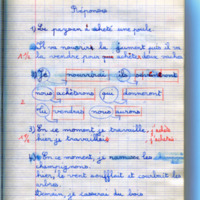 Réponses
1) Le paysan a acheté une poule.
Il va nourrir la jument puis il va
la vendre pour acheter deux vaches
2) Je nourrirai ils
nous achèterons qui donneront
tu vendras nous aurons
3) En ce moment, je travaille, j'achète
hier, je travaillais j'achetais
4) En ce moment, je ramasse les
champignons.
hier, le vent soufflait et courbait les
arbres.
Demain, je casserai du bois